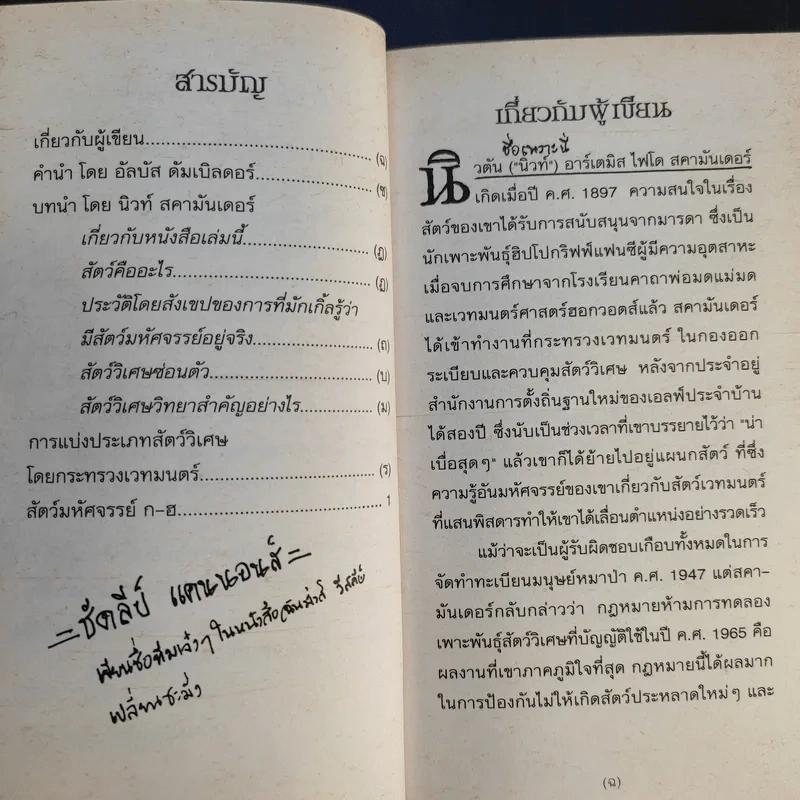 สารบัญ
เกี่ยวกับผู้เขียน........................(ฉ)
คำนำ โดย อัลบัส ดัมเบิลดอร์........................(ช)
บทนำ โดย นิวท์ สคามันเดอร์
เกี่ยวกับหนังสือเล่มนี้........................(ฎ)
สัตว์คืออะไร........................(ฏ)
ประวัติโดยสังเขปของการที่มักเกิ้ลรู้ว่า
มีสัตว์มหัศจรรย์อยู่จริง........................(ถ)
สัตว์วิเศษซ่อนตัว........................(บ)
สัตว์วิเศษวิทยาสำคัญอย่างไร........................(ม)
การแบ่งประเภทสัตว์วิเศษ
โดยกระทรวงเวทมนตร์........................(ร)
สัตว์มหัศจรรย์ ก-ฮ........................1
=ชัดลีย์ แคนนอนส์=
เขียนชื่อทีมเจ๋งๆ ในหนังสือ วีสลีย์
เปลี่ยนซะมั่ง
เกี่ยวกับผู้เขียน
ชื่อเพราะนี่
นิวตัน ("นิวท์") อาร์เตมิส ไฟโด สคามันเดอร์
เกิดเมื่อปี ค.ศ. 1897 ความสนใจในเรื่อง
สัตว์ของเขาได้รับการสนับสนุนจากมารดา ซึ่งเป็น
นักเพาะพันธุ์ฮิปโปกริฟฟ์แฟนซีผู้มีความอุตสาหะ
เมื่อจบการศึกษาจากโรงเรียนคาถาพ่อมดแม่มด
และเวทมนตร์ศาสตร์ฮอกวอตส์แล้ว สคามันเดอร์
ได้เข้าทำงานที่กระทรวงเวทมนตร์ ในกองออก
ระเบียบและควบคุมสัตว์วิเศษ หลังจากประจำอยู่
สำนักงานการตั้งถิ่นฐานใหม่ของเอลฟ์ประจำบ้าน
ได้สองปี ซึ่งนับเป็นช่วงเวลาที่เขาบรรยายไว้ว่า "น่า
เบื่อสุดๆ" แล้วเขาก็ได้ย้ายไปอยู่แผนกสัตว์ ที่ซึ่ง
ความรู้อันมหัศจรรย์ของเขาเกี่ยวกับสัตว์เวทมนตร์
ที่แสนพิสดารทำให้เขาได้เลื่อนตำแหน่งอย่างรวดเร็ว
แม้ว่าจะเป็นผู้รับผิดชอบเกือบทั้งหมดในการ
จัดทำทะเบียนมนุษย์หมาป่า ค.ศ. 1947 แต่สคา-
มันเดอร์กลับกล่าวว่า กฎหมายห้ามการทดลอง
เพาะพันธุ์สัตว์วิเศษที่บัญญัติใช้ในปี ค.ศ. 1965 คือ
ผลงานที่เขาภาคภูมิใจที่สุด กฎหมายนี้ได้ผลมาก
ในการป้องกันไม่ให้เกิดสัตว์ประหลาดใหม่ๆ และ
(ฉ)